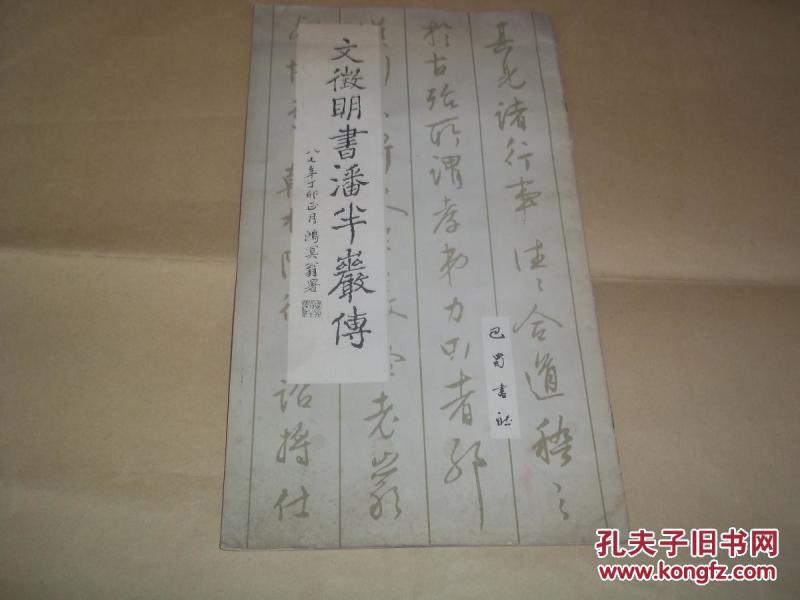 文徵明書潘半巖傳
八七年丁卯正月鴻冥翁署
巴蜀書社
其它諸行事往〻合道稽之
於古殆所謂孝弟力田者邪
老巖
諂搢仕
孔夫子旧书网
www.kongfz.com